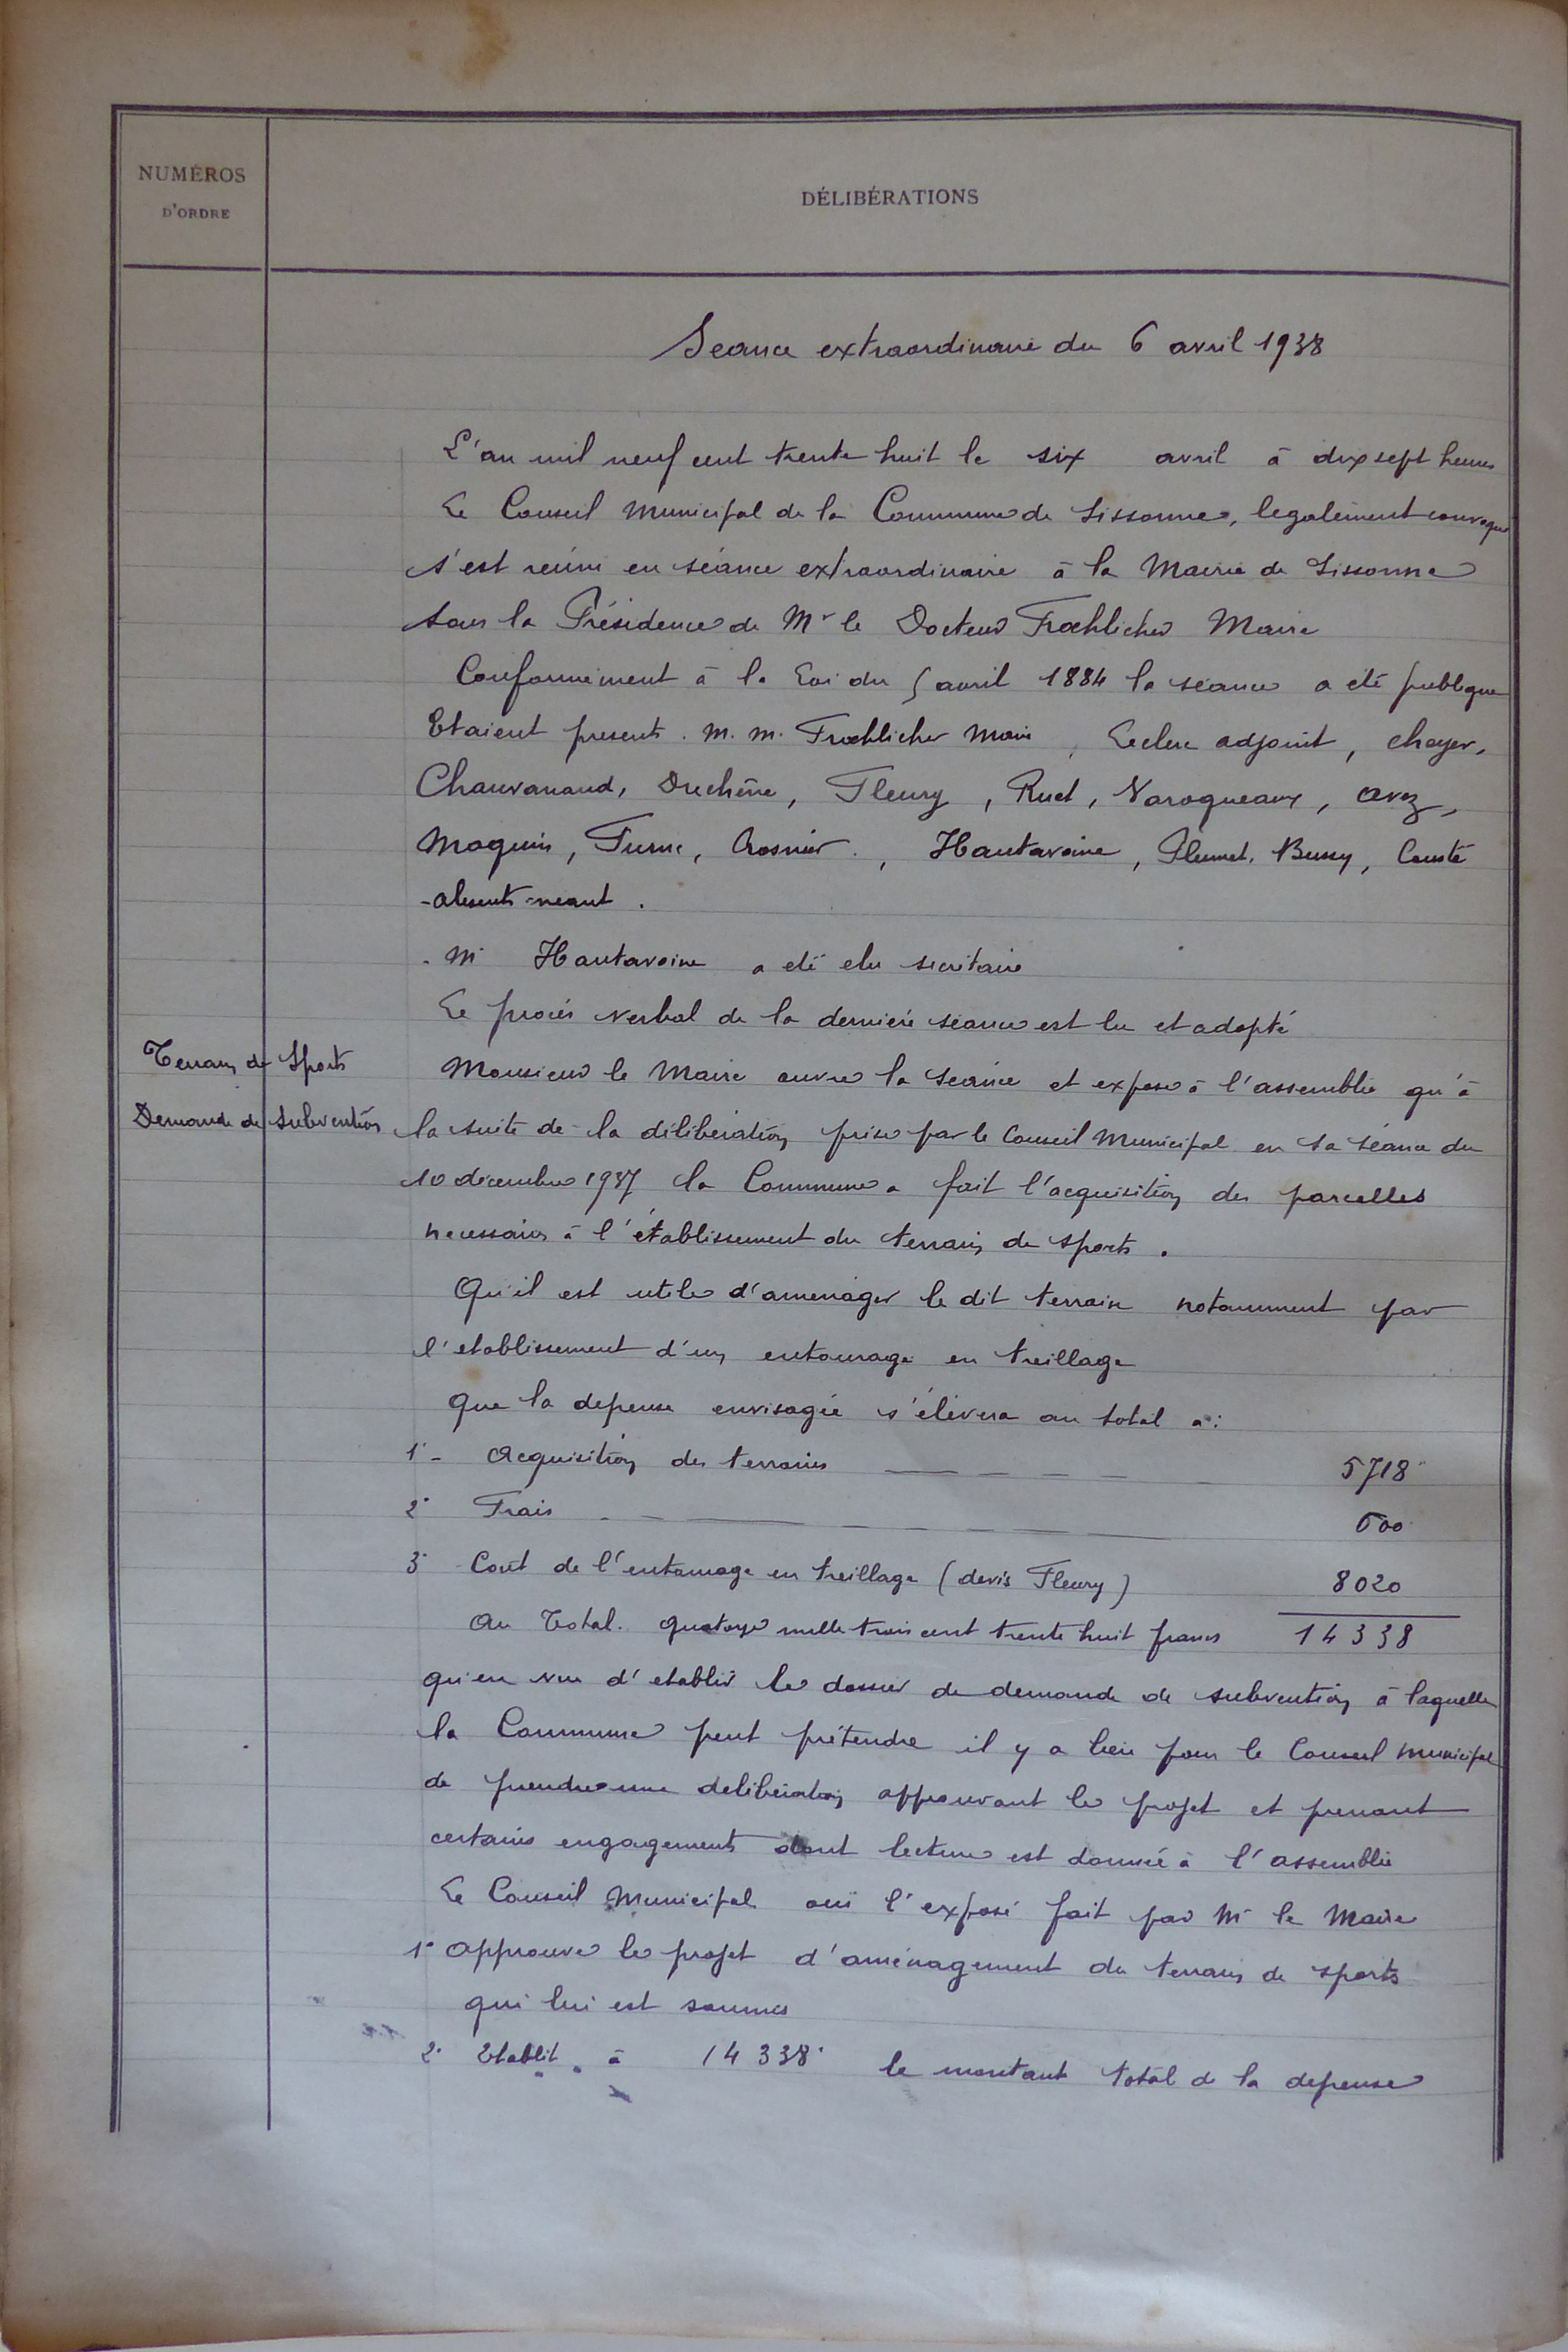 NUMÉROS
D'ORDRE
DÉLIBÉRATIONS
Seance extraordinaire du 6 avril 1938
L'an mil neuf cent trente huit le six avril à dix sept heures
Le Conseil Municipal de la Commune de Sissonne, legalement convoqué
s'est reuni en séance extraordinaire à la Mairie de Sissonne
sous la Présidence de Mr le Docteur Froehlicher Maire
Conformément à la Loi du 5 avril 1884 la séance a été publique
Etaient presents. M. M. Froehlicher Maire, Leclerc adjoint, Choyer,
Chauvanaud, Duchêne, Fleury, Ruel, Varoqueaux, Avez,
Moquin, Turne, Crosnier, Hautavoine, Plumet, Bussy, Cousté
- absents neant.
- Mr Hautavoine a été elu secrétaire
Le procès verbal de la derniere séance est lu et adopté
Terrain de Sports
Demande de subvention
Monsieur le Maire ouvre la séance et expose à l'assemblée qu'à
la suite de la délibération prise par le Conseil Municipal en sa séance du
10 décembre 1937 la Commune a fait l'acquisition des parcelles
necessaires à l'établissement du terrain de sports.
Qu'il est utile d'amenager le dit terrain notamment par
l'etablissement d'un entourage en treillage
que la depense envisagée s'élèvera au total à :
1° - Acquisition des terrains 5718
2° Frais 600
3° Coût de l'entourage en treillage (devis Fleury) 8020
Au Total. quatorze mille trois cent trente huit francs 14338
qu'en vue d'etablir le dossier de demande de subvention à laquelle
la Commune peut prétendre il y a lieu pour le Conseil Municipal
de prendre une deliberation approuvant le projet et prenant
certains engagements dont lecture est donnée à l'assemblée
Le Conseil Municipal ouï l'exposé fait par Mr le Maire
1° Approuve le projet d'aménagement du terrain de sports
qui lui est soumis
2° Etablit à 14338 le montant total de la depense